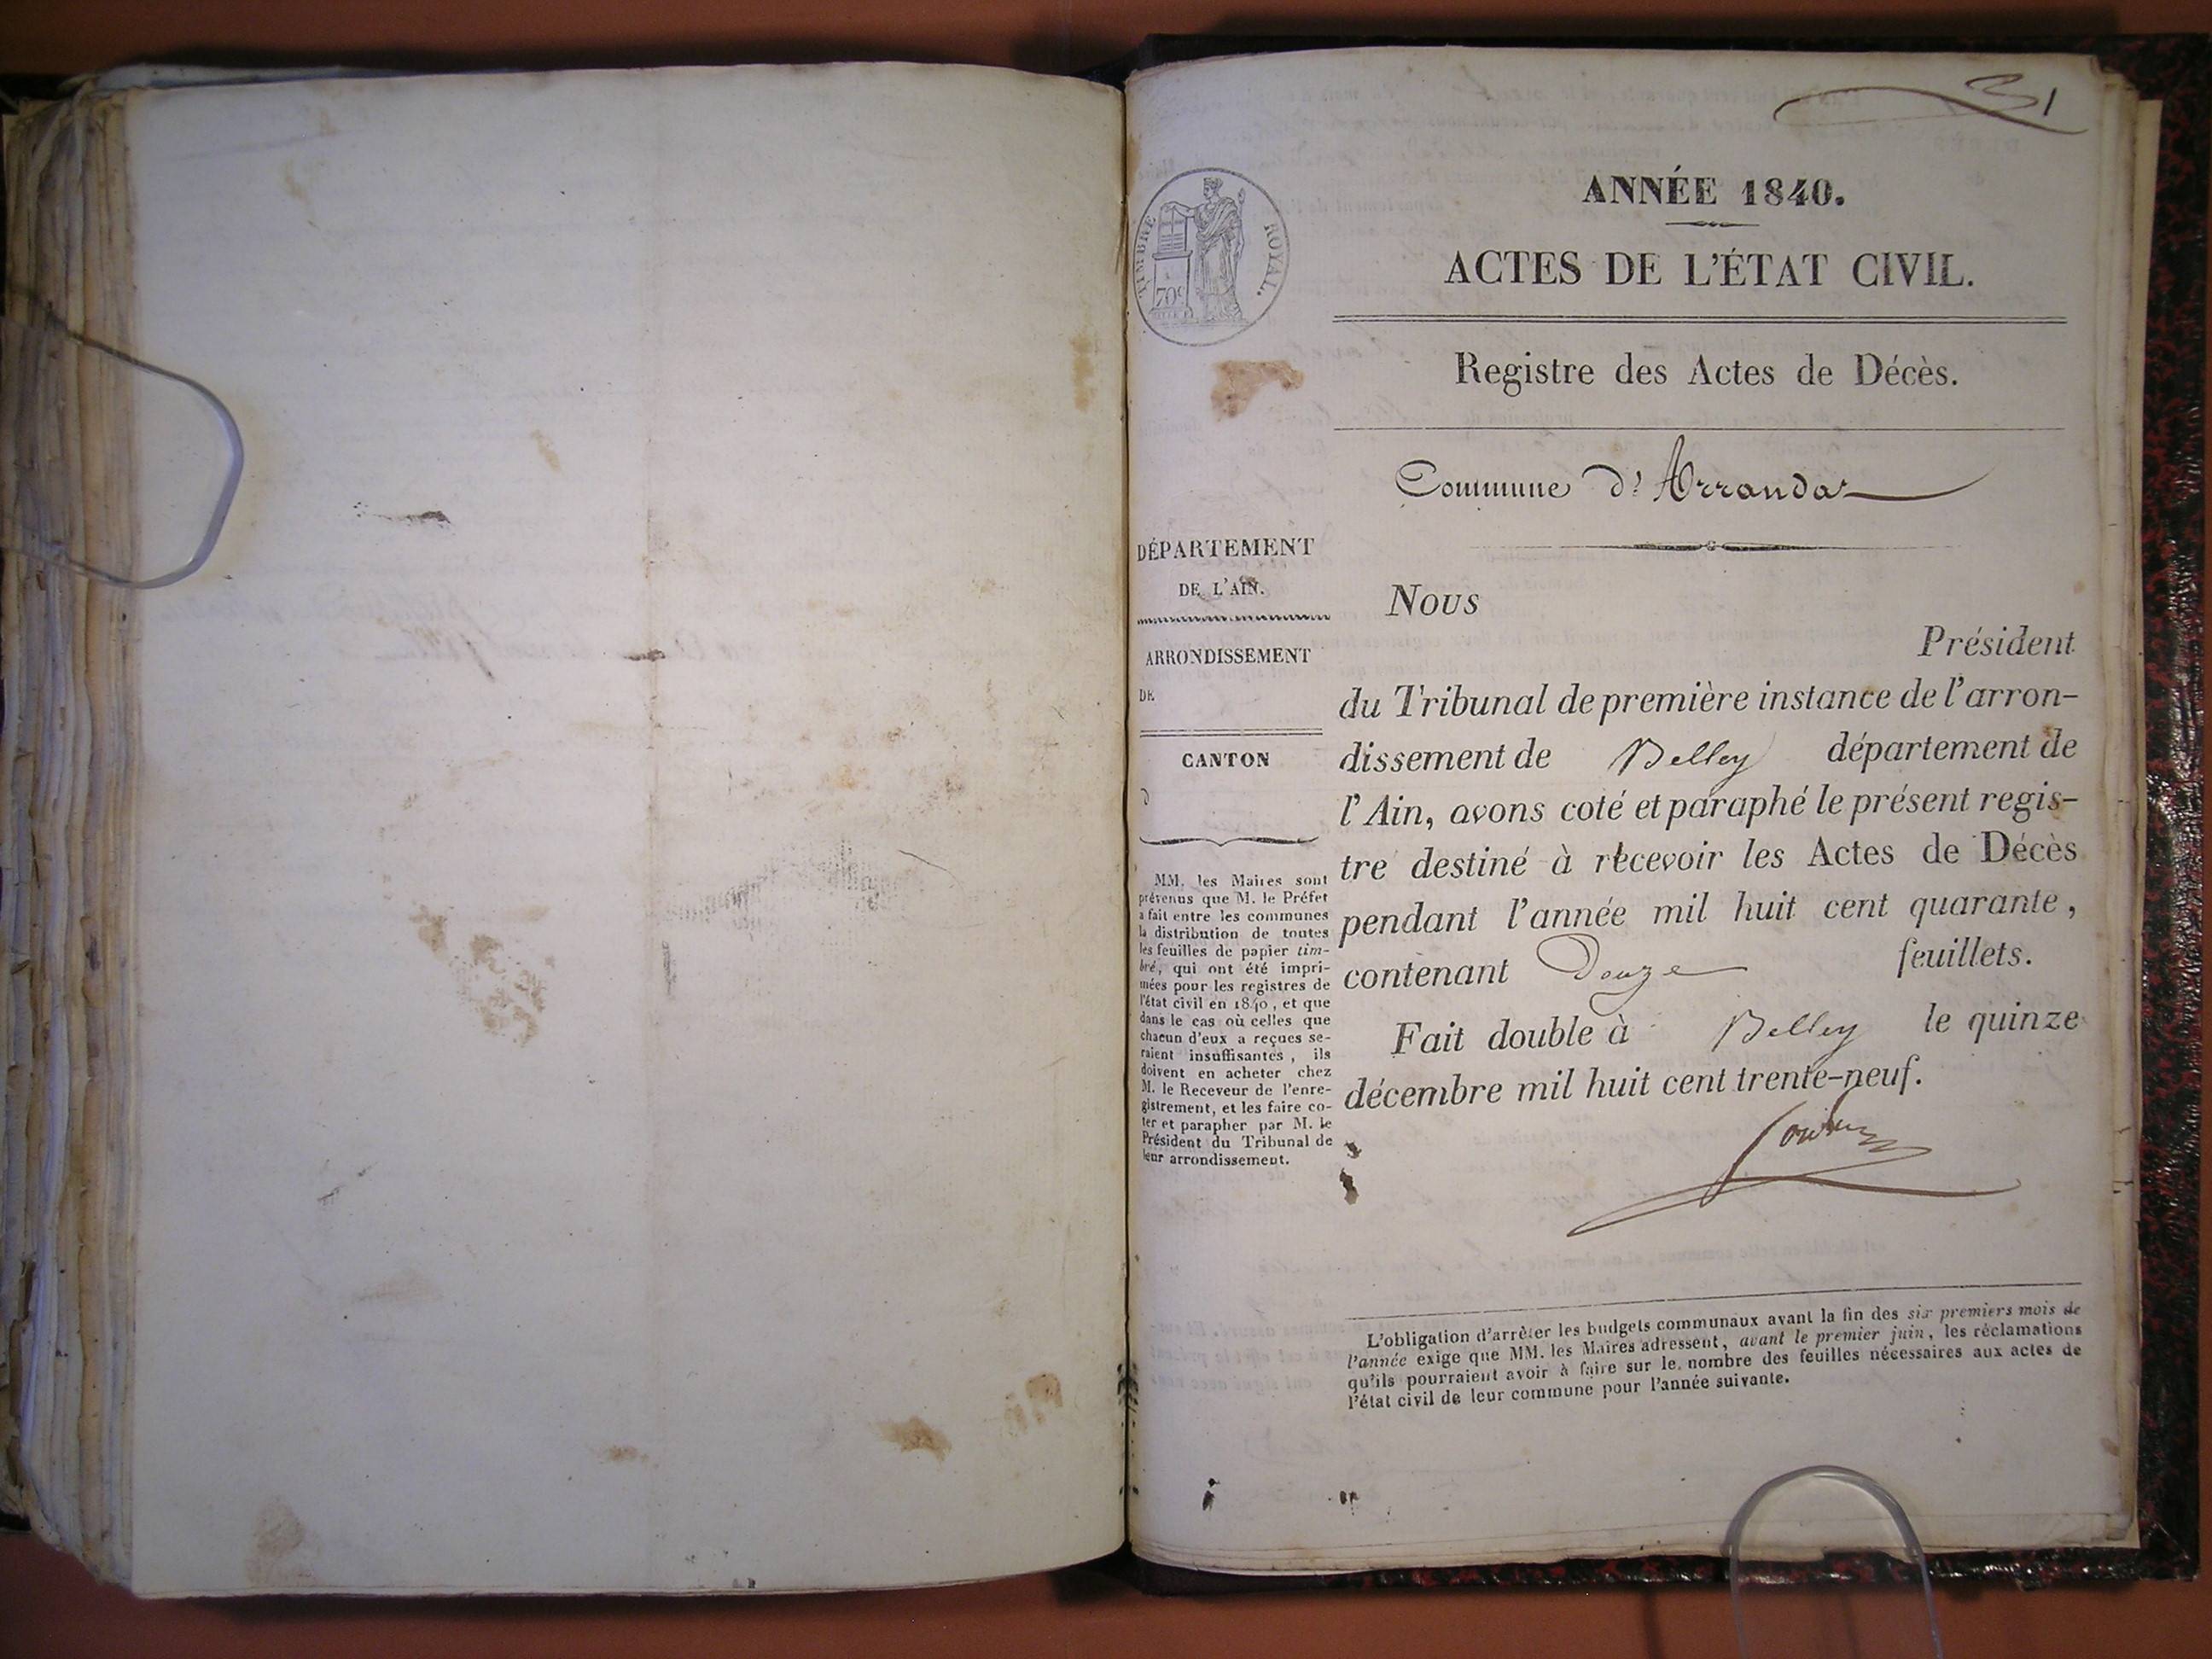 31
TIMBRE ROYAL.
70c
ANNÉE 1840.
ACTES DE L'ÉTAT CIVIL.
Registre des Actes de Décès.
Commune d'Arrandas
DÉPARTEMENT
DE L'AIN.
ARRONDISSEMENT
DE
CANTON
d
MM. les Maires sont
prévenus que M. le Préfet
a fait entre les communes
la distribution de toutes
les feuilles de papier tim-
bré, qui ont été impri-
mées pour les registres de
l'état civil en 1840, et que
dans le cas où celles que
chacun d'eux a reçues se-
raient insuffisantes, ils
doivent en acheter chez
M. le Receveur de l'enre-
gistrement, et les faire co-
ter et parapher par M. le
Président du Tribunal de
leur arrondissement.
Nous
Président
du Tribunal de première instance de l'arron-
dissement de Belley département de
l'Ain, avons coté et paraphé le présent regis-
tre destiné à recevoir les Actes de Décès
pendant l'année mil huit cent quarante,
contenant Douze feuillets.
Fait double à Belley le quinze
décembre mil huit cent trente-neuf.
L'obligation d'arrêter les budgets communaux avant la fin des six premiers mois de
l'année exige que MM. les Maires adressent, avant le premier juin, les réclamations
qu'ils pourraient avoir à faire sur le nombre des feuilles nécessaires aux actes de
l'état civil de leur commune pour l'année suivante.